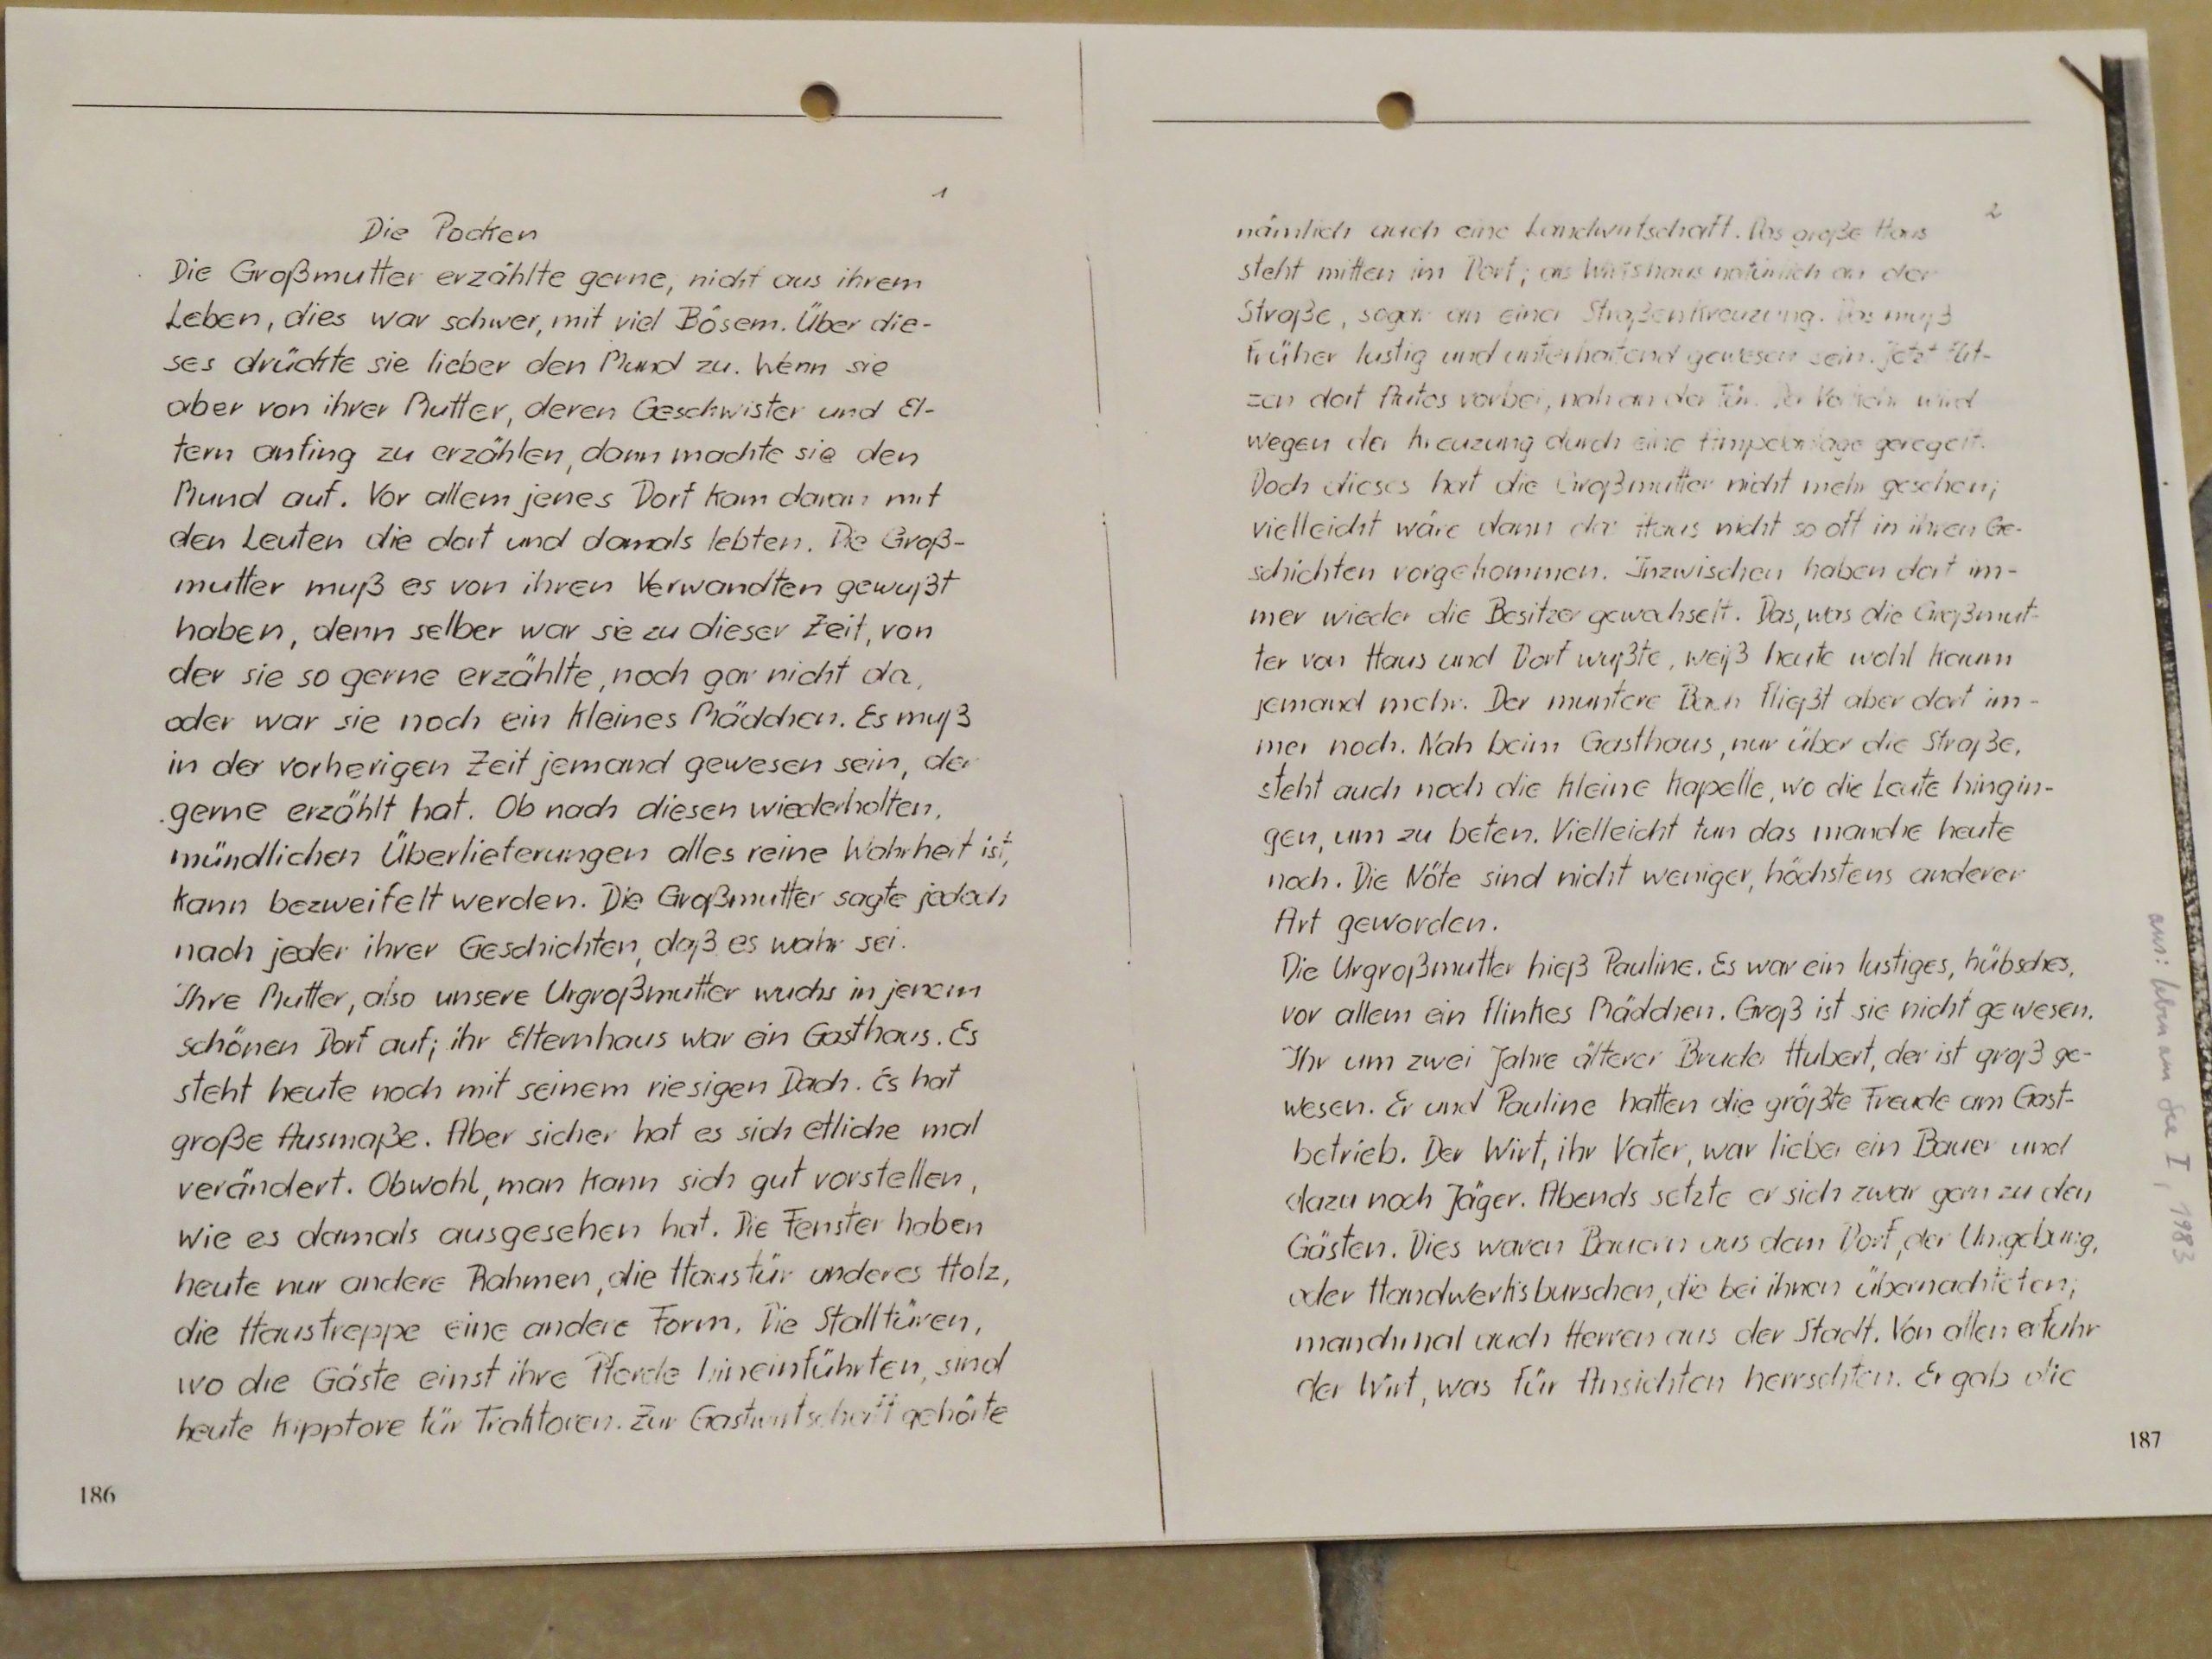 1
Die Pocken
Die Großmutter erzählte gerne, nicht aus ihrem
Leben, dies war schwer, mit viel Bösem. Über die-
ses drückte sie lieber den Mund zu. Wenn sie
aber von ihrer Mutter, deren Geschwister und El-
tern anfing zu erzählen, dann machte sie den
Mund auf. Vor allem jenes Dorf kam daran mit
den Leuten die dort und damals lebten. Die Groß-
mutter muß es von ihren Verwandten gewußt
haben, denn selber war sie zu dieser Zeit, von
der sie so gerne erzählte, noch gar nicht da,
oder war sie noch ein kleines Mädchen. Es muß
in der vorherigen Zeit jemand gewesen sein, der
gerne erzählt hat. Ob nach diesen wiederholten,
mündlichen Überlieferungen alles reine Wahrheit ist,
kann bezweifelt werden. Die Großmutter sagte jedoch
nach jeder ihrer Geschichten, daß es wahr sei.
Ihre Mutter, also unsere Urgroßmutter wuchs in jenem
schönen Dorf auf; ihr Elternhaus war ein Gasthaus. Es
steht heute noch mit seinem riesigen Dach. Es hat
große Ausmaße. Aber sicher hat es sich etliche mal
verändert. Obwohl, man kann sich gut vorstellen,
wie es damals ausgesehen hat. Die Fenster haben
heute nur andere Rahmen, die Haustür anderes Holz,
die Haustreppe eine andere Form. Die Stalltüren,
wo die Gäste einst ihre Pferde hineinführten, sind
heute Kipptore für Traktoren. Zur Gastwirtschaft gehörte
186
2
nämlich auch eine Landwirtschaft. Das große Haus
steht mitten im Dorf; als Wirtshaus natürlich an der
Straße, sogar an einer Straßenkreuzung. Das muß
früher lustig und unterhaltend gewesen sein. Jetzt flit-
zen dort Autos vorbei, nah an der Tür. Der Verkehr wird
wegen der Kreuzung durch eine Ampelanlage geregelt.
Doch dieses hat die Großmutter nicht mehr gesehen;
vielleicht wäre dann das Haus nicht so oft in ihren Ge-
schichten vorgekommen. Inzwischen haben dort im-
mer wieder die Besitzer gewechselt. Das, was die Großmut-
ter von Haus und Dorf wußte, weiß heute wohl kaum
jemand mehr. Der muntere Bach fließt aber dort im-
mer noch. Nah beim Gasthaus, nur über die Straße,
steht auch noch die kleine Kapelle, wo die Leute hingin-
gen, um zu beten. Vielleicht tun das manche heute
noch. Die Nöte sind nicht weniger, höchstens anderer
Art geworden.
Die Urgroßmutter hieß Pauline. Es war ein lustiges, hübsches,
vor allem ein flinkes Mädchen. Groß ist sie nicht gewesen.
Ihr um zwei Jahre älterer Bruder Hubert, der ist groß ge-
wesen. Er und Pauline hatten die größte Freude am Gast-
betrieb. Der Wirt, ihr Vater, war lieber ein Bauer und
dazu noch Jäger. Abends setzte er sich zwar gern zu den
Gästen. Dies waren Bauern aus dem Dorf, der Umgebung,
oder Handwerksburschen, die bei ihnen übernachteten;
manchmal auch Herren aus der Stadt. Von allen erfuhr
der Wirt, was für Ansichten herrschten. Er gab die
187
aus: leben am see I, 1983